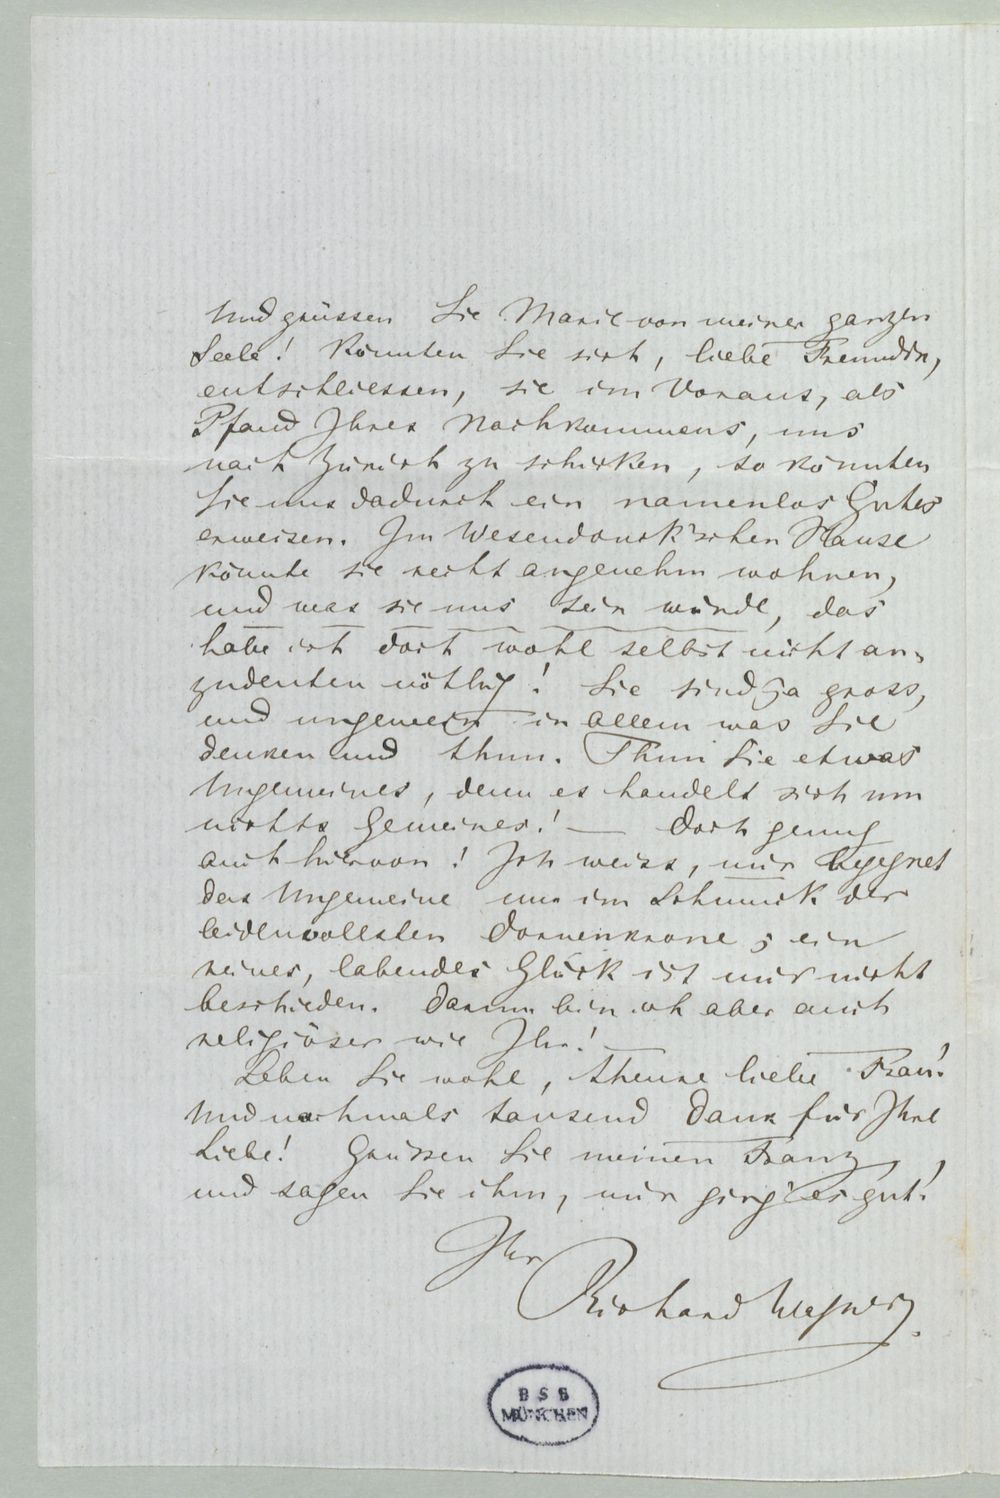 Und grüssen Sie Marie von meiner ganzen
Seele! Könnten Sie sich, liebe Freundin,
entschliessen, sie im Voraus, als
Pfand Ihres Nachkommens, uns
nach Zürich zu schicken, so könnten
Sie uns dadurch ein namenlos Gutes
erweisen. Im Wesendonck'schen Hause
könnte sie recht angenehm wohnen,
und was sie uns sein würde, das
habe ich doch wohl selbst nicht an-
zudeuten nöthig! Sie sind ja gross,
und ungemein in allem was Sie
denken und thun. Thun Sie etwas
Ungemeines, denn es handelt sich um
nichts Gemeines! — Doch genug
auch hiervon! Ich weiss, mir begegnet
das Ungemeine nur im Schmuck der
leidenvollsten Dornenkrone; ein
reines, labendes Glück ist mir nicht
beschieden. Darum bin ich aber auch
religiöser wie Ihr! —
Leben Sie wohl, theure liebe Frau!
Und nochmals tausend Dank für Ihre
Liebe! Grüssen Sie meinen Franz,
und sagen Sie ihm, mir ging' es gut!
Ihr
Richard Wagner.
BSB
MÜNCHEN